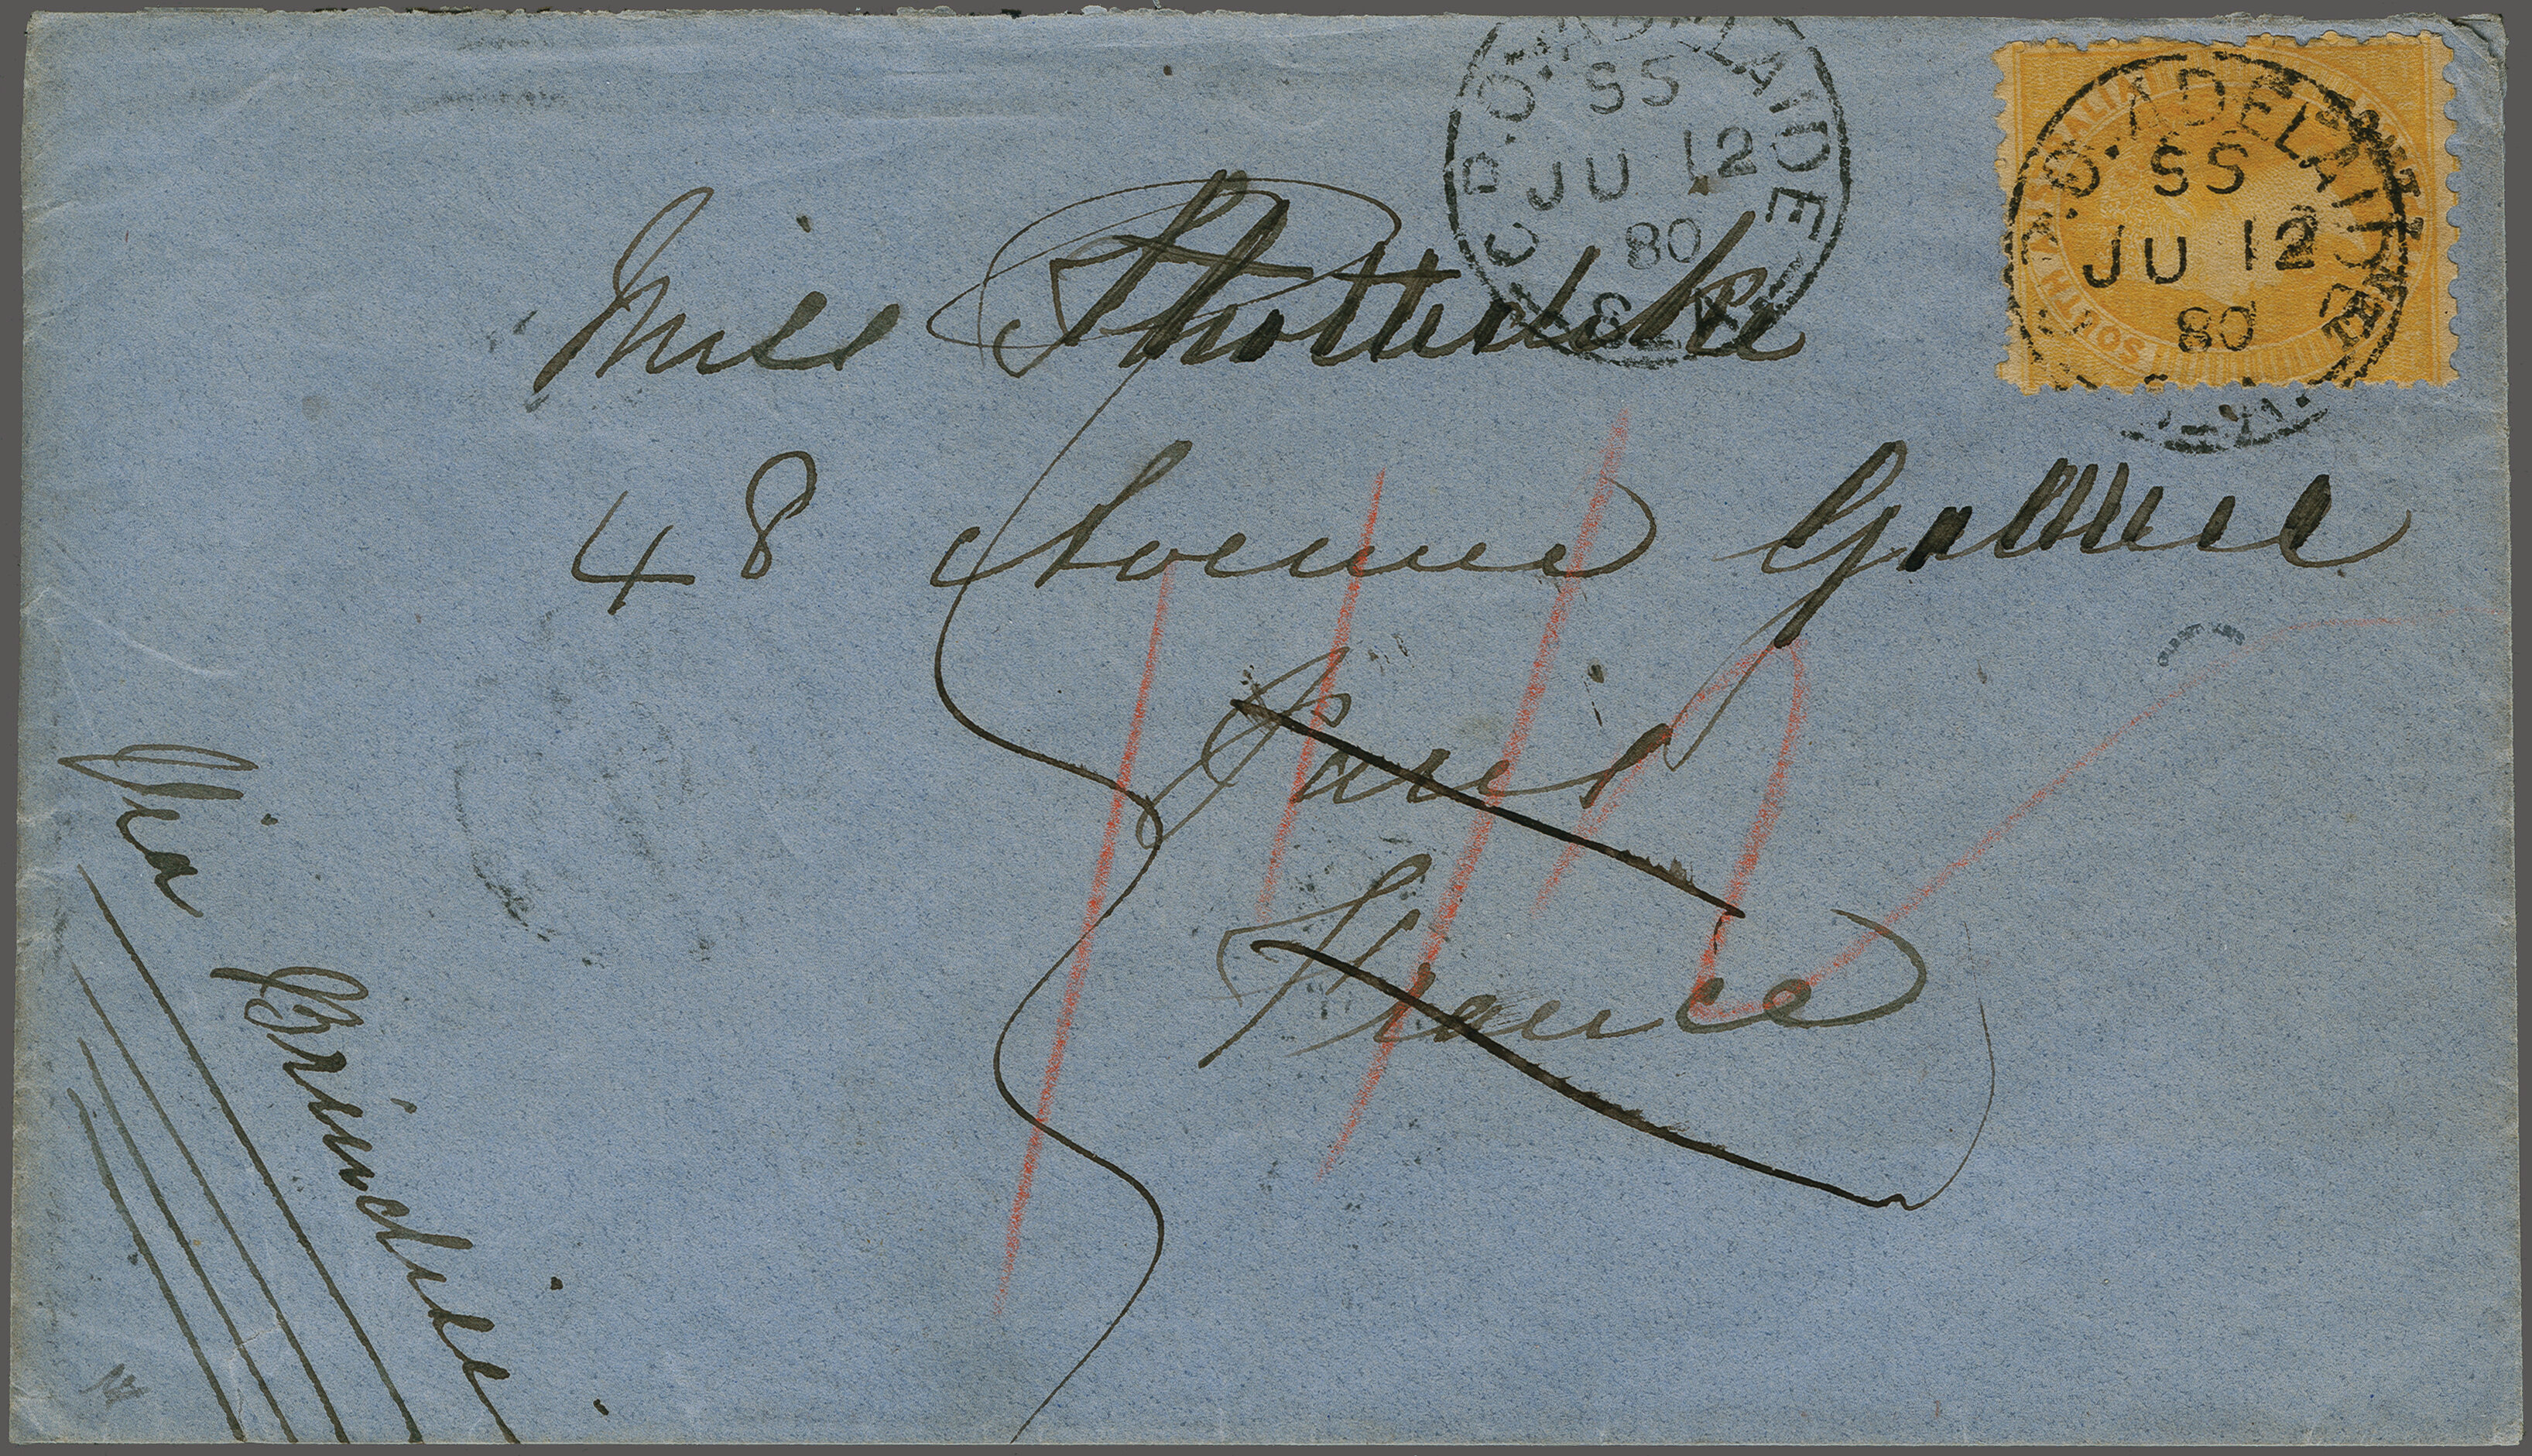 G.P.O. ADELAIDE
SS
JU 12
80
S.A
G.P.O. ADELAIDE
SS
JU 12
80
S.A.
SOUTH AUSTRALIA
Miss
48 Avenue Gabriel
Paris
France
Via Brindisi